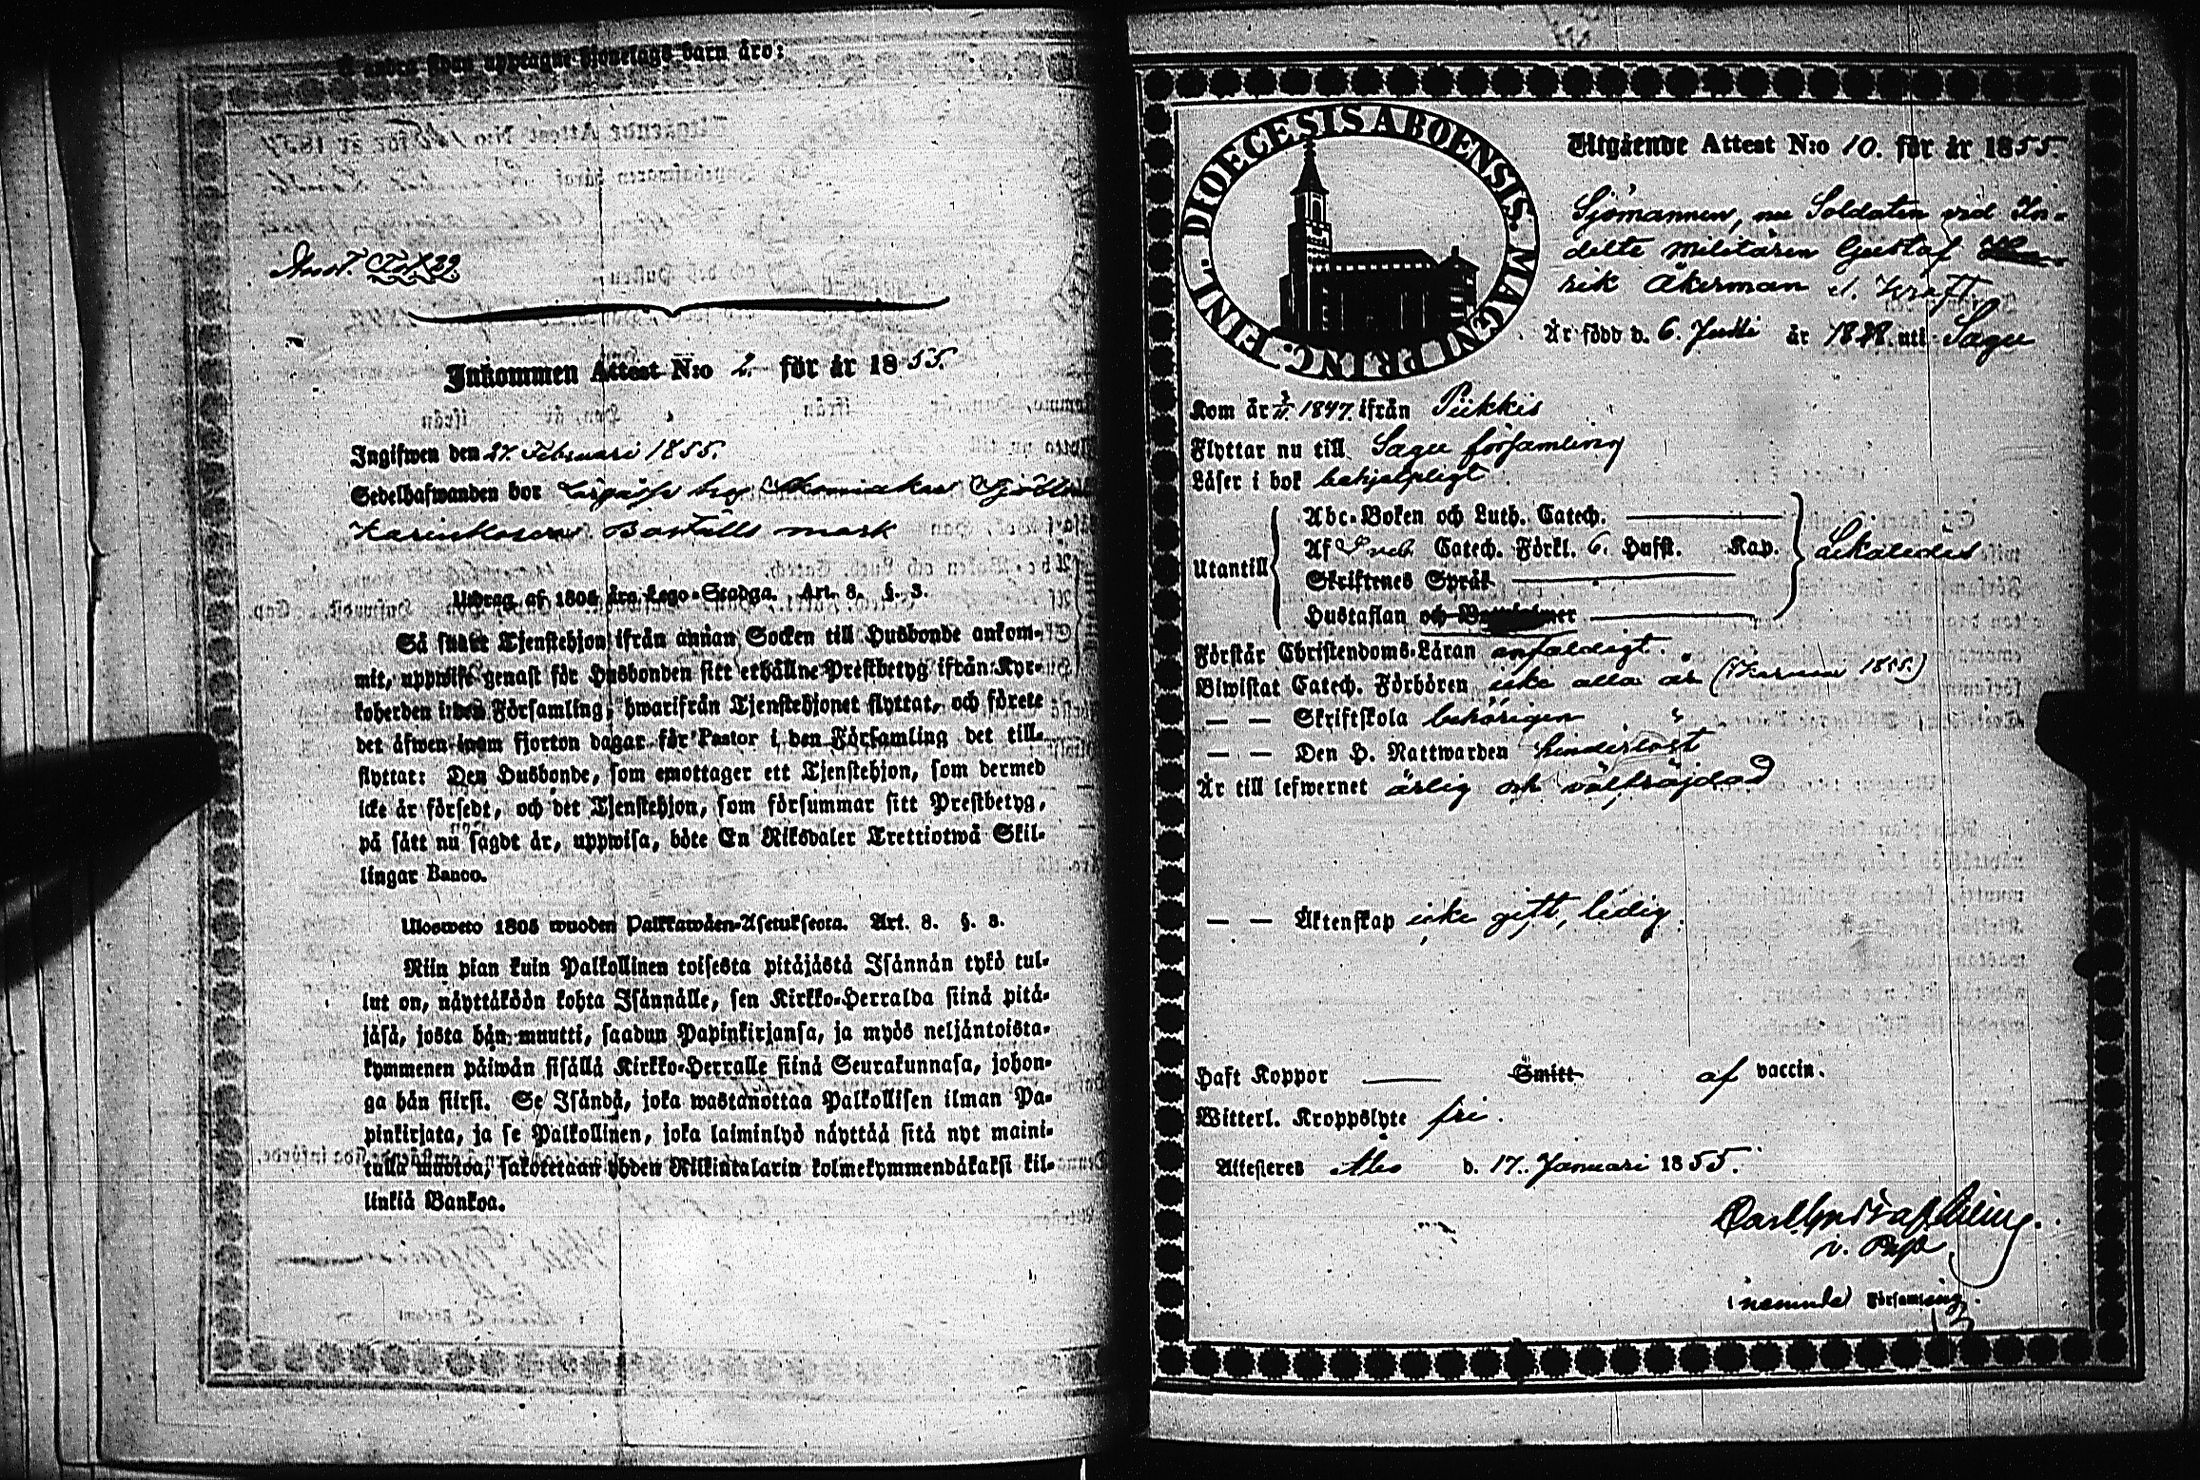 å andra sidan upptagne hjonelags barn äro:
Annot. Fol. 39.
Inkommen Attest N:o 2. för år 1855.
Ingifwen den 27. Februari 1855.
Sedelhafwanden bor
mark
Utdrag af 1805 års Lego-Stadga. Art. 8. §. 3.
Så snart Tjenstehjon ifrån annan Socken till Husbonde ankom-
mit, uppwise genast för Husbonden sitt erhållne Prestbetyg ifrån Kyr-
koherden i den Församling, hwarifrån Tjenstehjonet flyttat, och förete
det äfwen inom fjorton dagar för Pastor i den Församling det till-
flyttat: Den Husbonde, som emottager ett Tjenstehjon, som dermed
icke är försedt, och det Tjenstehjon, som försummar sitt Prestbetyg,
på sätt nu sagdt är, uppwisa, böte En Riksdaler Trettiotwå Skil-
lingar Banco.
Ulosweto 1805 wuoden Palkkawäen-Asetuksesta. Art. 8. §. 3.
Niin pian kuin Palkollinen toisesta pitäjästä Isännän tykö tul-
lut on, näyttäköön kohta Isännälle, sen Kirkko-Herralda siinä pitä-
jäsä, josta hän muutti, saadun Papinkirjansa, ja myös neljäntoista-
kymmenen päiwän sisällä Kirkko-Herralle siinä Seurakunnasa, johon-
ga hän siirsi. Se Isändä, joka wastanottaa Palkollisen ilman Pa-
pinkirjata, ja se Palkollinen, joka laiminlyö näyttää sitä nyt maini-
tulla muotoa, sakotetaan yhden Riikintalarin kolmekymmendäkaksi kil-
linkiä Bankoa.
DIOECESIS ABOENSIS. MAGNI PRINC. FINL.
Utgående Attest N:o 10. för år 1855.
Sjömannen, nu Soldaten vid In-
delte Militären Gustaf Hen-
rik Åkerman el. Kraft
Är född d. 6. Juli år 1828 uti Sagu
Kom år 1847. ifrån Piikkis
Flyttar nu till Sagu församling
Läser i bok behjelpligt
Utantill
Abc-Boken och Luth. Catech.
Af Sveb. Catech. Förkl. 6. Hufst. Kap.
Skriftenes Språk
Hustaflan och
Likaledes
Förstår Christendoms-Läran enfaldigt.
Biwistat Catech. Förhören icke alla år
— — Skriftskola behörigen
— — Den H. Nattwarden hinderlöst
Är till lefwernet ärlig och välfräjdad
— — Äktenskap icke gift, ledig.
Haft Koppor — Smitt af vaccin.
Witterl. Kroppslyte fri.
Attesteras Åbo d. 17. Januari 1855.
v. Past.
i nämnde Församling.